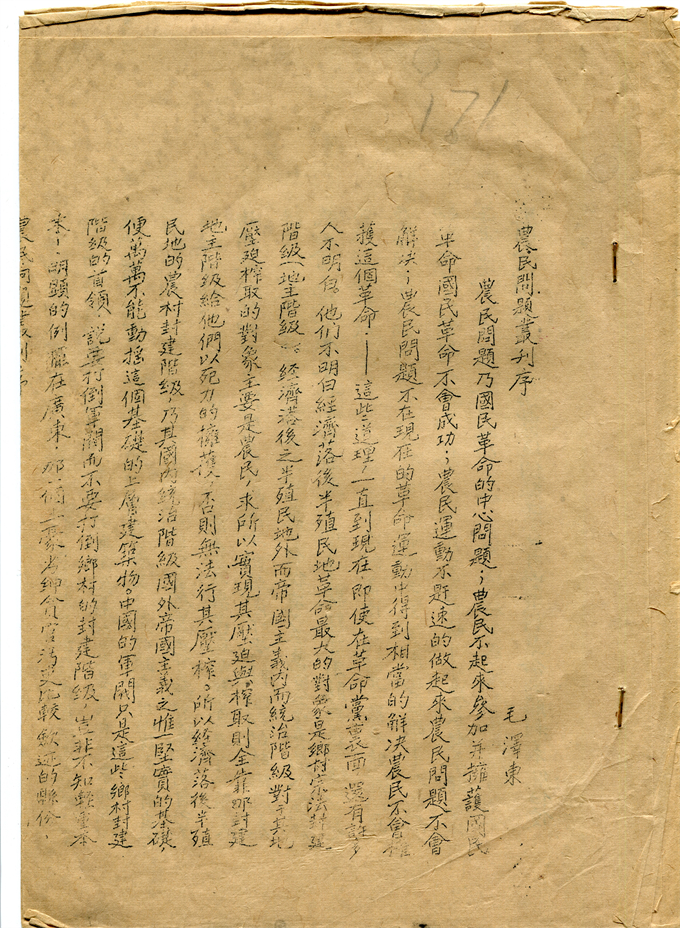 農民問題叢刊序
毛澤東
農民問題乃國民革命的中心問題;農民不起來參加并擁護國民
革命國民革命不會成功;農民運動不趕速的做起來農民問題不會
解决;農民問題不在現在的革命運動中得到相當的解决農民不會擁
護這個革命。——這些道理,一直到現在,即使在革命黨裏面,還有許多
人不明白。他們不明白經濟落後半殖民地革命最大的對象是鄉村宗法封建
階級(地主階級)。經濟落後之半殖民地外而帝國主義內而統治階級對于其地
壓迫榨取的對象主要是農民,求所以實現其壓迫與榨取則全靠那封建
地主階級給他們以死力的擁護,否則無法行其壓榨。所以經濟落後半殖
民地的農村封建階級,乃其國內統治階級國外帝國主義之惟一堅實的基礎,
便萬萬不能動搖這個基礎的上層建築物。中國的軍閥只是這些鄉村封建
階級的首領,說要打倒軍閥而不要打倒鄉村的封建階級,豈非不知輕重本
末?明顯的例擺在廣東:那一個土豪劣紳貪官污吏比較斂迹的縣份,
農民問題叢刊序
171